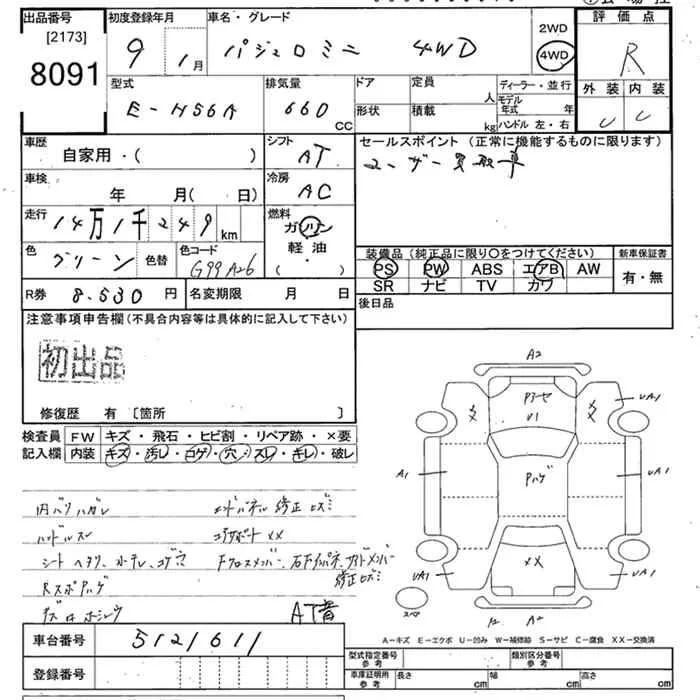 出品番号
[2173]
8091
初度登録年月
9 1月
車名・グレード
パジェロミニ 4WD
2WD
4WD
評価点
R
外装 内装
型式
E-H56A
排気量
660 CC
ドア
形状
定員 人
積載 kg
ディーラー・並行
モデル年式 年
ハンドル 左・右
車歴
自家用・( )
シフト
AT
セールスポイント(正常に機能するものに限ります)
ユーザー買取車
車検
年 月( 日)
冷房
AC
走行
14万1千249 km
燃料
ガソリン
軽油
( ・ )
色
グリーン
色替
色コード
装備品(純正品に限り○をつけてください)
PS PW ABS エアB AW
SR ナビ TV カワ
新車保証書
有・無
R券 8.530円
名変期限 月 日
後日品
注意事項申告欄(不具合内容等は具体的に記入して下さい)
初出品
修復歴 有〔箇所 〕
検査員記入欄
FW キズ・飛石・ヒビ割・リペア跡・×要
内装 キズ・汚レ・コゲ・穴・スレ・キレ・破レ
内バリハガレ
ハンドルスレ
コアサポートXX
AT音
A2
U1
UA1
UA1
A1
Pハゲ
UA1
XX
UA1
UA1
スペア
A2
A-キズ E-エクボ U-凹み W-補修跡 S-サビ C-腐食 XX-交換済
車台番号
5121611
登録番号
型式指定番号 参考
類別区分番号 参考
車庫証明用 参考
長さ cm
幅 cm
高さ cm